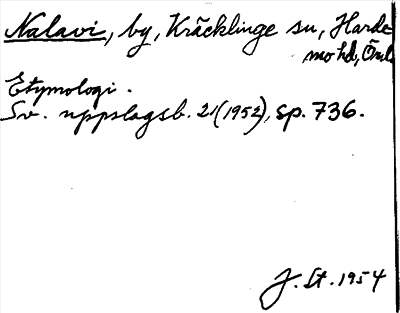 Nalavi, by, Kräcklinge sn, Harde
mo hd, Önl
Etymologi.
Sv. uppslagsb. 21 (1952), sp. 736.
J. St. 1954